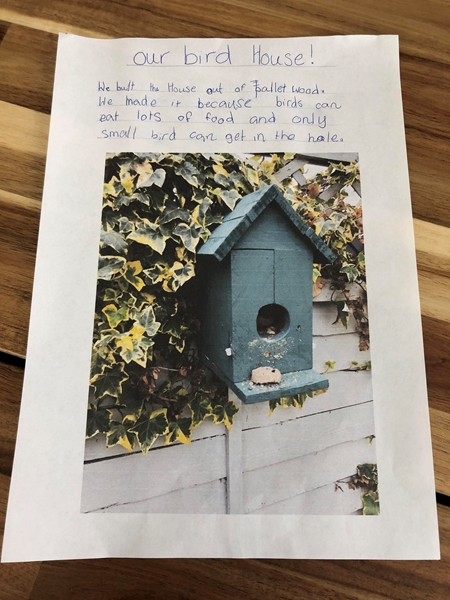 our bird House!
We built the House out of pallet wood.
We made it because birds can
eat lots of food and only
small bird can get in the hole.